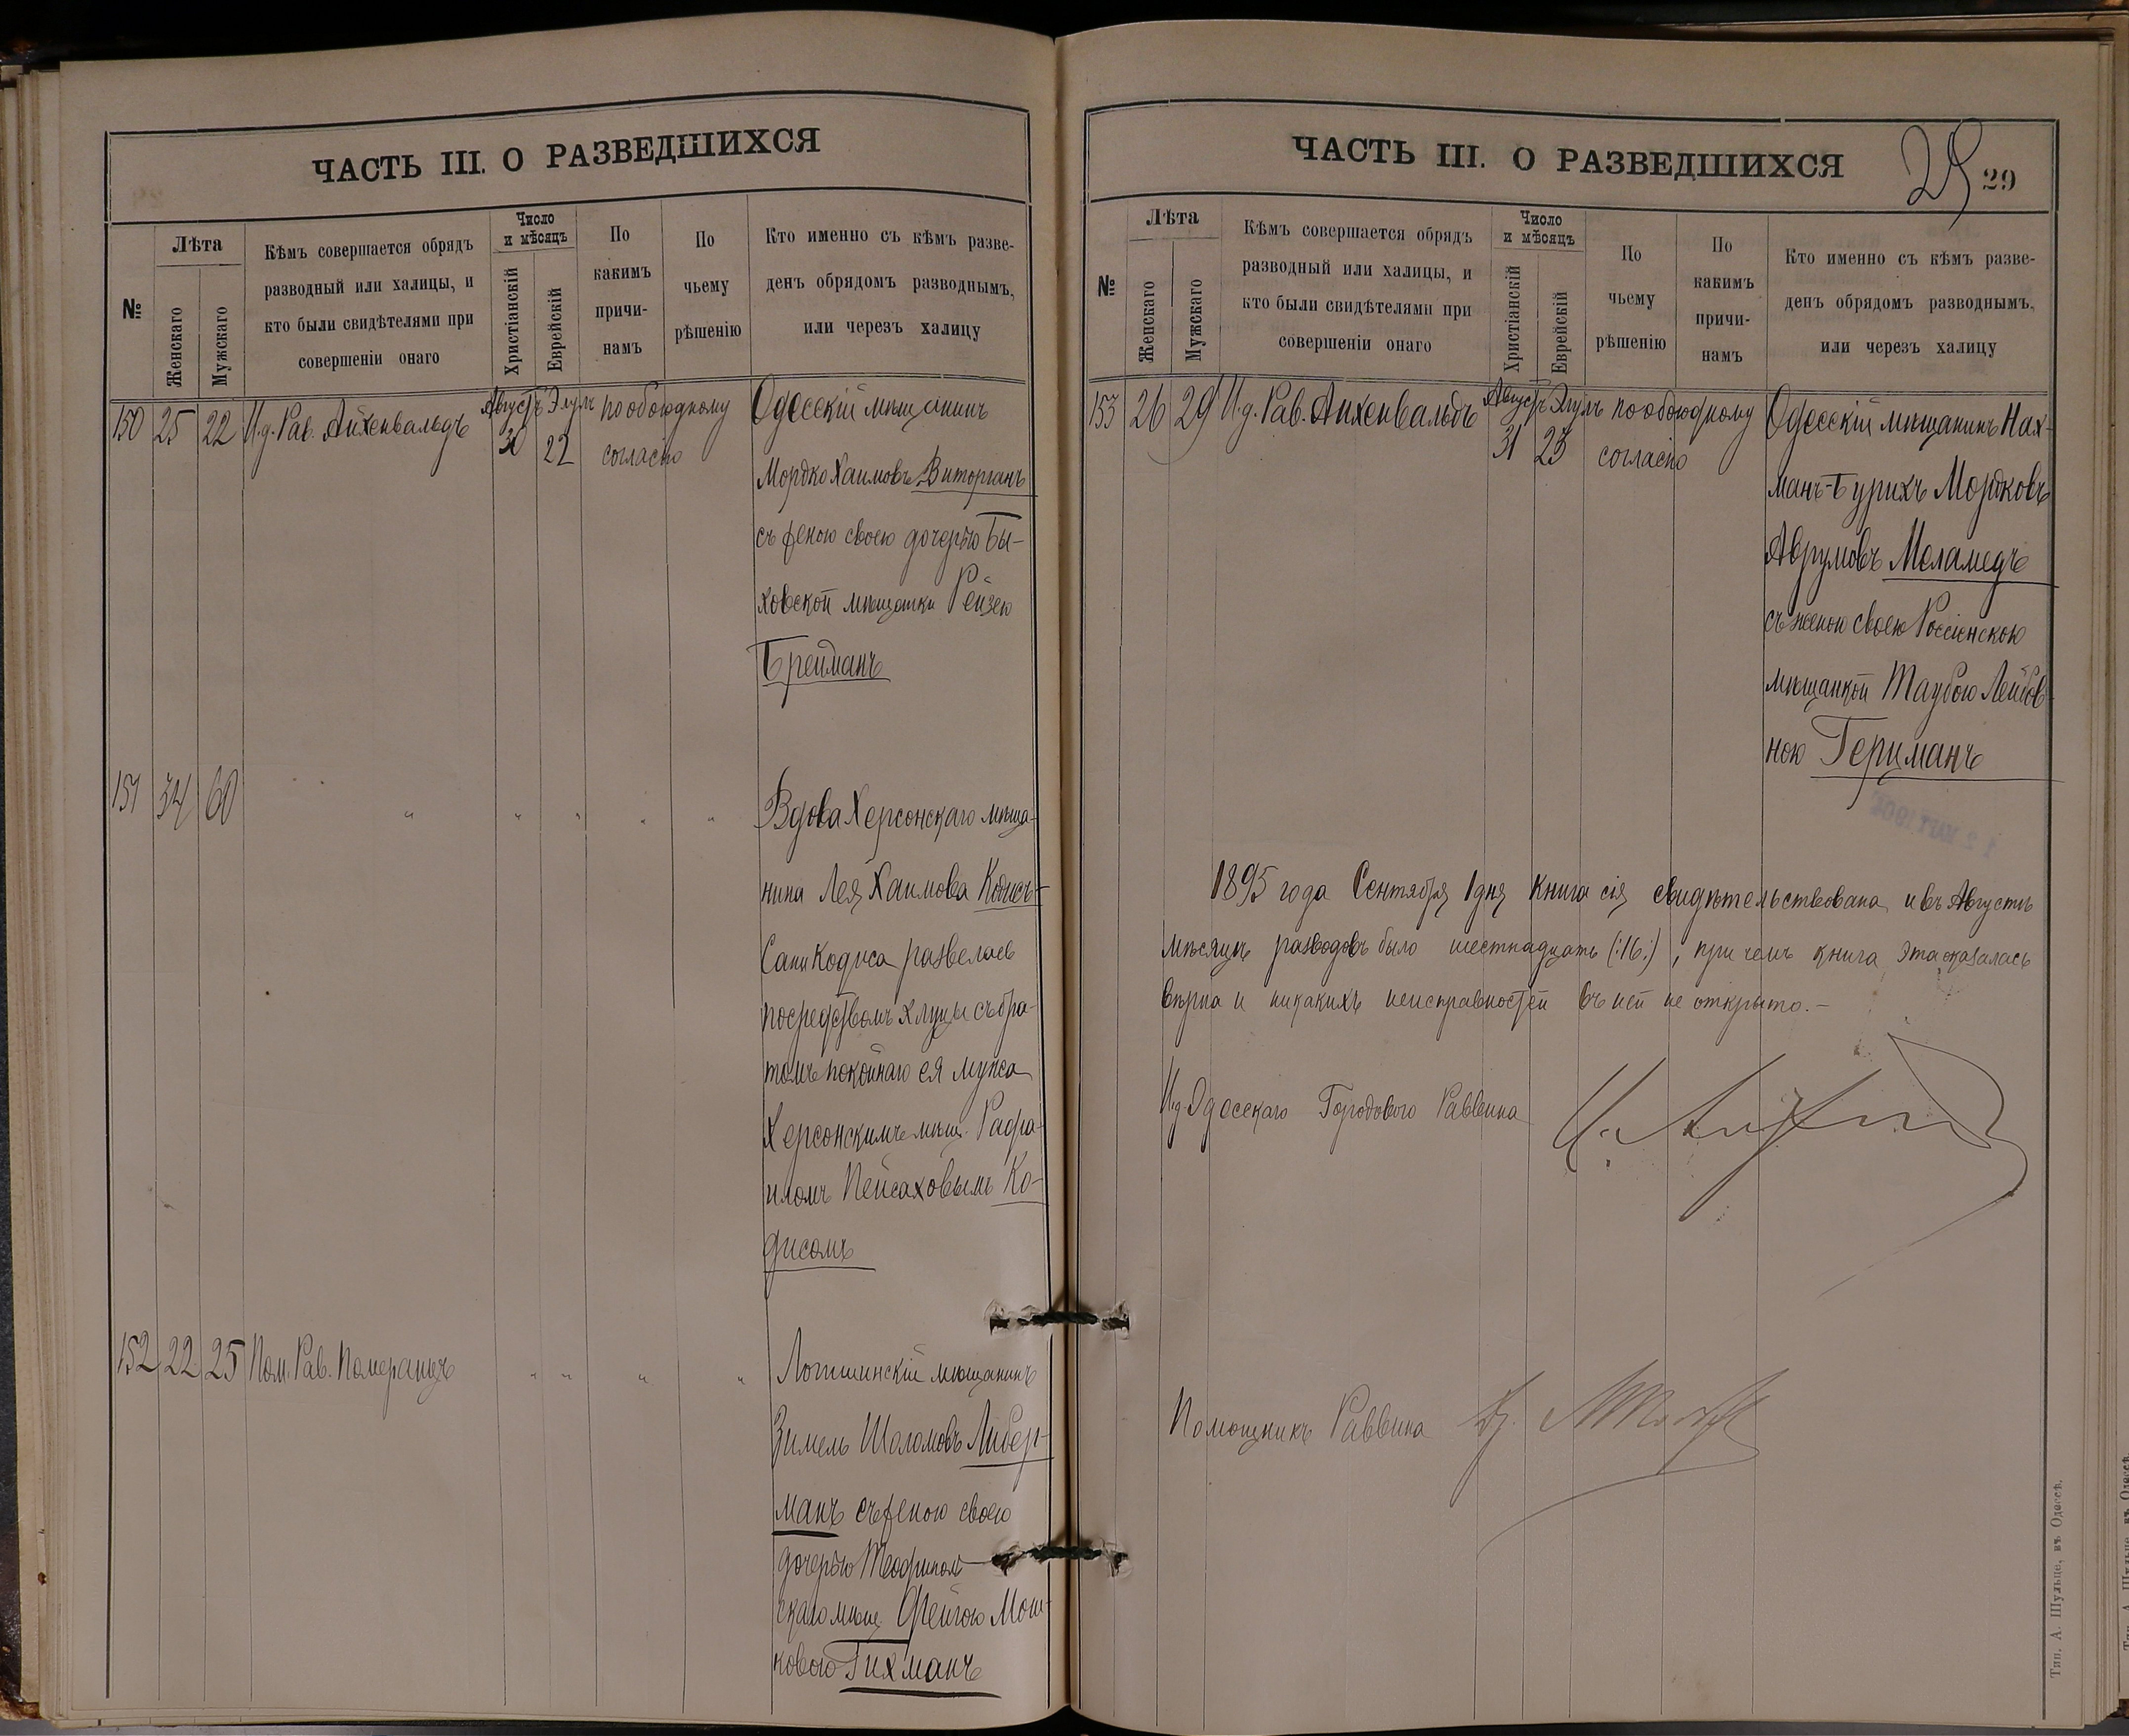 ЧАСТЬ III. О РАЗВЕДШИХСЯ
№
Лѣта
Женскаго
Мужскаго
Кѣмъ совершается обрядъ
разводный или халицы, и
кто были свидѣтелями при
совершеніи онаго
Число
и мѣсяцъ
Христіанскій
Еврейскій
По
какимъ
причи-
намъ
По
чьему
рѣшенію
Кто именно съ кѣмъ разве-
денъ обрядомъ разводнымъ,
или черезъ халицу
150 25 22 И.д. Рав. Айхенвальдъ Августъ Элулъ по обоюдному Одесскій мѣщанинъ
30 22 согласію
Мордко Хаимовъ Виторганъ
съ женою своею дочерью Бы-
ховской мѣщанки Рейзею
Брейманъ
151 34 60 " " " " " Вдова Херсонскаго мѣща-
нина Лея Хаимова Кодисъ-
Сани Кодиса развелась
посредствомъ хлицы съ бра-
томъ покойнаго ея мужа
Херсонскимъ мѣщ. Рафа-
иломъ Пейсаховымъ Ко-
дисомъ
152 22 25 Пом. Рав. Померанцъ " " " " мѣщанинъ
Зимель Шоломовъ Либер-
манъ съ женою своею
дочерью Теофиполь-
скаго мѣщ. Фейгою Мош-
ковою Гихманъ
ЧАСТЬ III. О РАЗВЕДШИХСЯ
29 29
№
Лѣта
Женскаго
Мужскаго
Кѣмъ совершается обрядъ
разводный или халицы, и
кто были свидѣтелями при
совершеніи онаго
Число
и мѣсяцъ
Христіанскій
Еврейскій
По
чьему
рѣшенію
По
какимъ
причи-
намъ
Кто именно съ кѣмъ разве-
денъ обрядомъ разводнымъ,
или черезъ халицу
153 26 29 И.д. Рав. Айхенвальдъ Августъ Элулъ по обоюдному Одесскій мѣщанинъ Нах-
31 23 согласію
манъ-Бурихъ Мордковъ
Аврумовъ Меламедъ
съ женою своею Россіенскою
мѣщанкой Таубою Лейбов-
ною Герцманъ
1895 года Сентября 1 дня книга сія свидѣтельствована и въ Августѣ
мѣсяцѣ разводовъ было шестнадцать (:16:), при чемъ книга эта оказалась
вѣрна и никакихъ неисправностей въ ней не открыто.-
И.д Одесскаго Городового Раввина
Помощникъ Раввина
Тип. А. Шульце, въ Одессѣ.